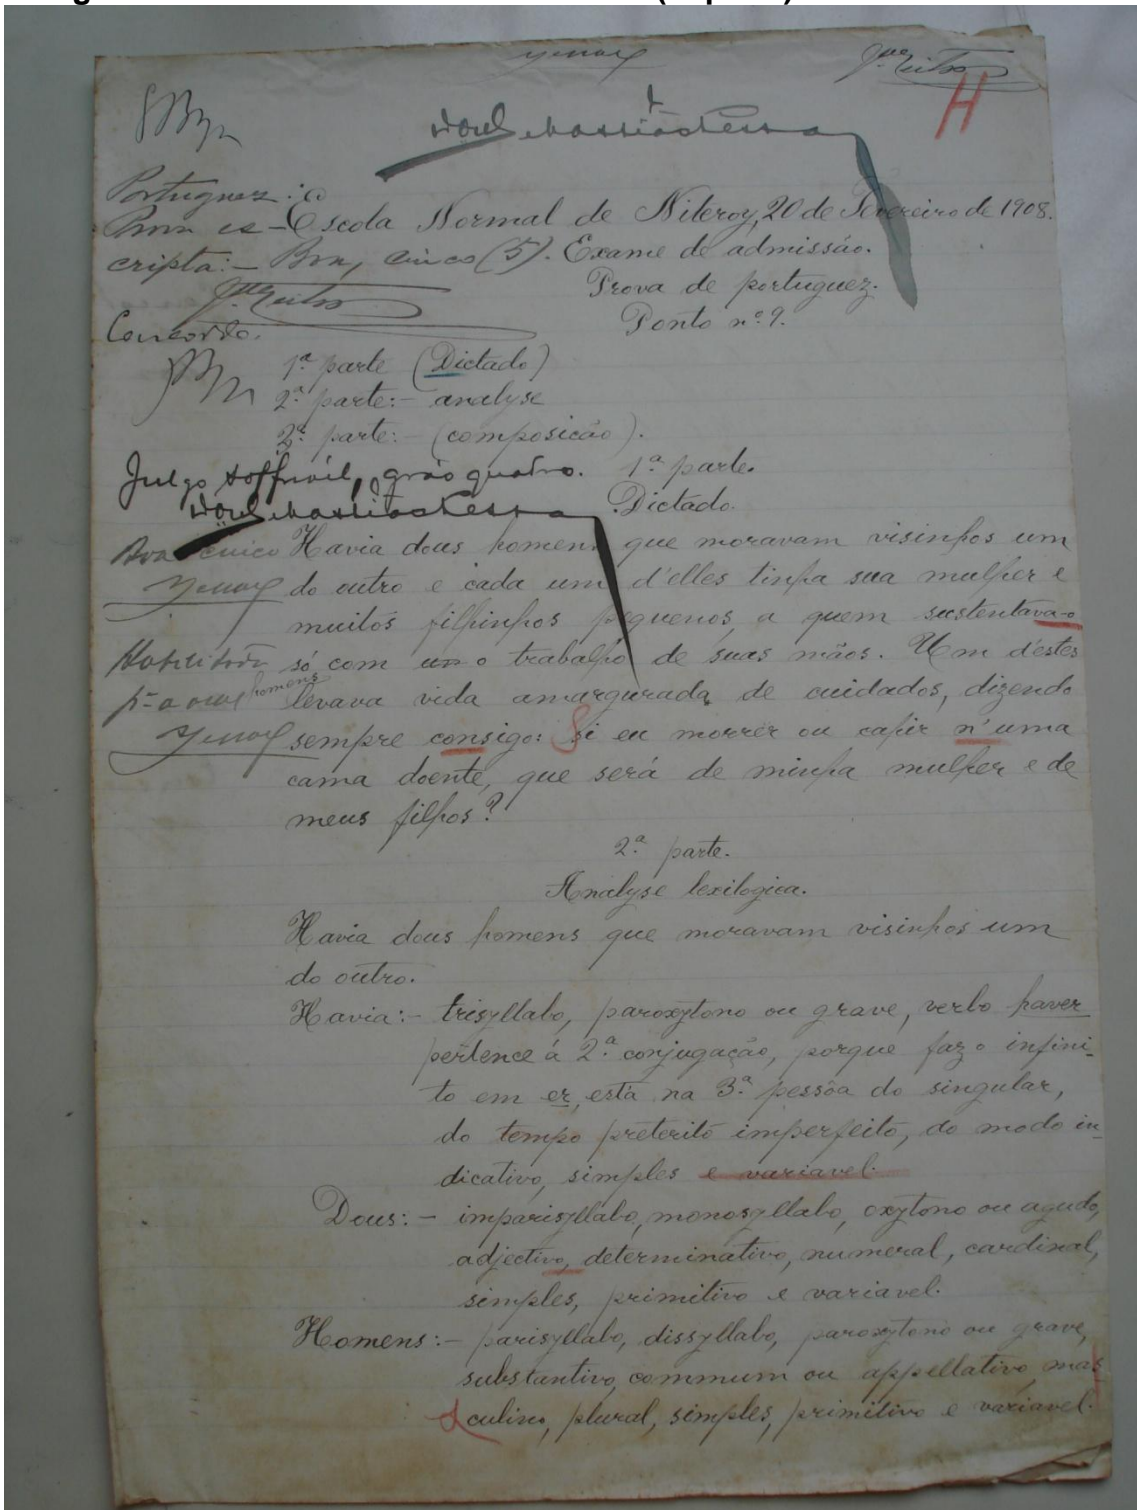 H
Portuguez:
Escola Normal de Niteroy, 20 de Fevereiro de 1908.
cripta:- Boa, cinco (5). Exame de admissão.
Prova de portuguez.
Concordo.
Ponto nº 9.
1ª parte (Dictado)
2ª parte:- analyse
2ª parte:- (composição).
Julgo soffrivel, gráo quatro. 1ª parte.
Dictado.
Havia dous homens que moravam visinhos um
do outro e cada um d'elles tinha sua mulher e
muitos filhinhos pequenos, a quem sustentava-o
só com o trabalho de suas mãos. Um d'estes
homens
levava vida amargurada de cuidados, dizendo
sempre consigo: si eu morrer ou cahir n'uma
cama doente, que será de minha mulher e de
meus filhos?
2ª parte.
Analyse lexilogica.
Havia dous homens que moravam visinhos um
do outro.
Havia:- trisyllabo, paroxytono ou grave, verbo haver
pertence á 2ª conjugação, porque faz o infini-
to em er, está na 3ª pessôa do singular,
do tempo preterito imperfeito, do modo in-
dicativo, simples e variavel.
Dous:- imparisyllabo, monosyllabo, oxytono ou agudo,
adjectivo, determinativo, numeral, cardinal,
simples, primitivo e variavel.
Homens:- parisyllabo, dissyllabo, paroxytono ou grave,
substantivo, commum ou appellativo, mas
culino, plural, simples, primitivo e variavel.